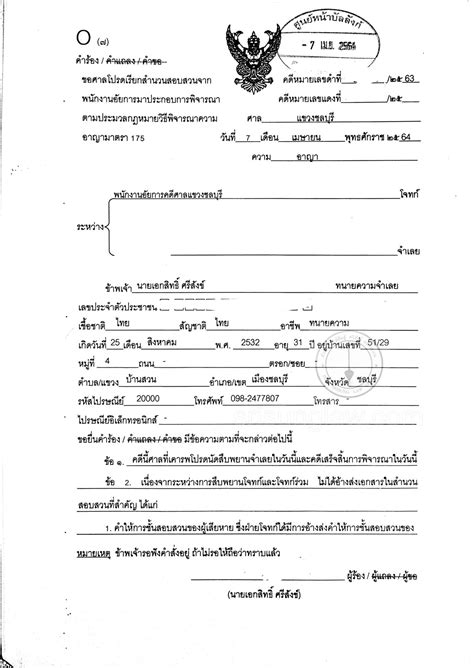 ศูนย์หน้าบัลลังก์
- 7 เม.ย. 2564
O (๗)
คำร้อง / คำแถลง / คำขอ
ขอศาลโปรดเรียกสำนวนสอบสวนจาก คดีหมายเลขดำที่ /๒๕ 63
พนักงานอัยการมาประกอบการพิจารณา คดีหมายเลขแดงที่ /๒๕
ตามประมวลกฎหมายวิธีพิจารณาความ ศาล แขวงชลบุรี
อาญามาตรา 175 วันที่ 7 เดือน เมษายน พุทธศักราช ๒๕ 64
ความ อาญา
พนักงานอัยการคดีศาลแขวงชลบุรี โจทก์
ระหว่าง
จำเลย
ข้าพเจ้า นายเอกสิทธิ์ ศรีสังข์ ทนายความจำเลย
เลขประจำตัวประชาชน
เชื้อชาติ ไทย สัญชาติ ไทย อาชีพ ทนายความ
เกิดวันที่ 25 เดือน สิงหาคม พ.ศ. 2532 อายุ 31 ปี อยู่บ้านเลขที่ 51/29
หมู่ที่ 4 ถนน - ตรอก/ซอย -
ตำบล/แขวง บ้านสวน อำเภอ/เขต เมืองชลบุรี จังหวัด ชลบุรี
รหัสไปรษณีย์ 20000 โทรศัพท์ 098-2477807 โทรสาร -
ไปรษณีย์อิเล็กทรอนิกส์ -
ขอยื่นคำร้อง / คำแถลง / คำขอ มีข้อความตามที่จะกล่าวต่อไปนี้
ข้อ ๑. คดีนี้ศาลที่เคารพโปรดนัดสืบพยานจำเลยในวันนี้และคดีเสร็จสิ้นการพิจารณาในวันนี้
ข้อ 2. เนื่องจากระหว่างการสืบพยานโจทก์และโจทก์ร่วม ไม่ได้อ้างส่งเอกสารในสำนวน
สอบสวนที่สำคัญ ได้แก่
1. คำให้การชั้นสอบสวนของผู้เสียหาย ซึ่งฝ่ายโจทก์ได้มีการอ้างส่งคำให้การชั้นสอบสวนของ
หมายเหตุ ข้าพเจ้ารอฟังคำสั่งอยู่ ถ้าไม่รอให้ถือว่าทราบแล้ว
ผู้ร้อง / ผู้แถลง / ผู้ขอ
(นายเอกสิทธิ์ ศรีสังข์)